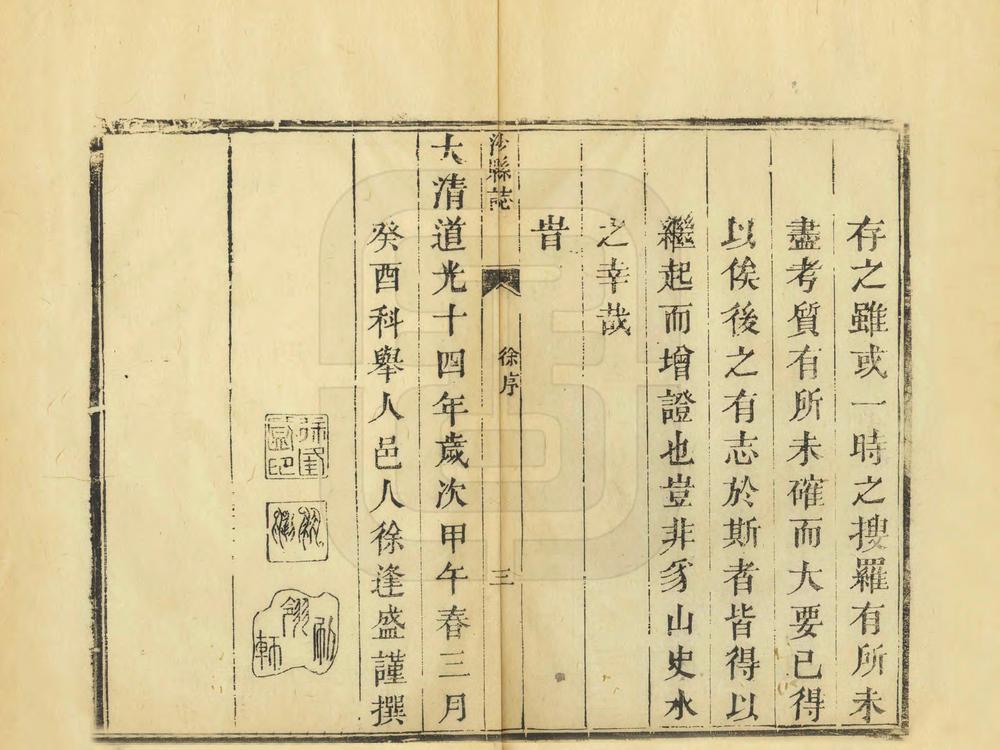 存之雖或一時之搜羅有所未
盡考質有所未確而大要已得
以俟後之有志於斯者皆得以
繼起而增證也豈非豸山史水
之幸哉
旹
沙縣誌
徐序
三
大清道光十四年歲次甲午春三月
癸酉科舉人邑人徐逢盛謹撰
徐逢盛印